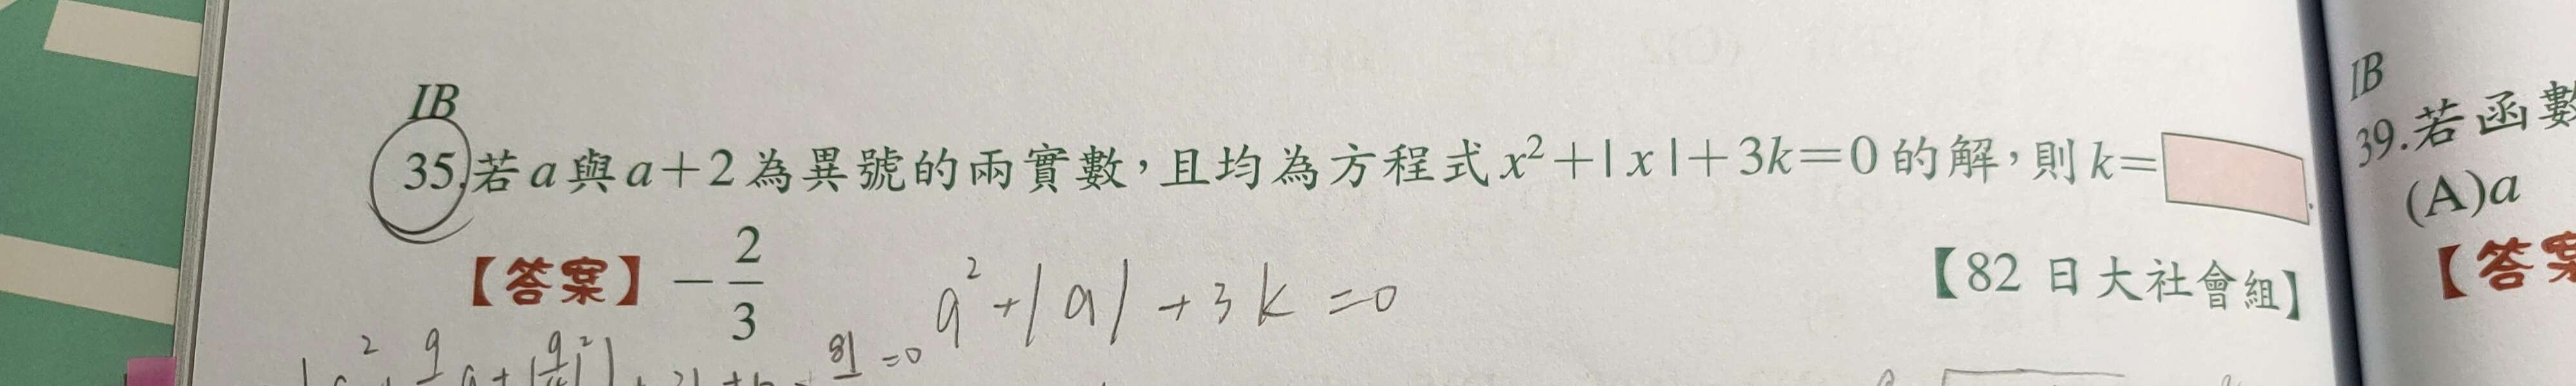 IB
35.若a與a+2為異號的兩實數，且均為方程式x²+|x|+3k=0的解，則k=
【答案】-2/3
a²+|a|+3k=0
【82 日大社會組】
IB
39.若函數
(A)a
【答案